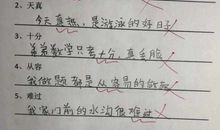 2、天真
今天真热,是游泳的好日子
3、十分
弟弟数学只考十分,真丢脸
4、从容
我做题都是从容易的做起
5、难过
我家门前的水沟很难过